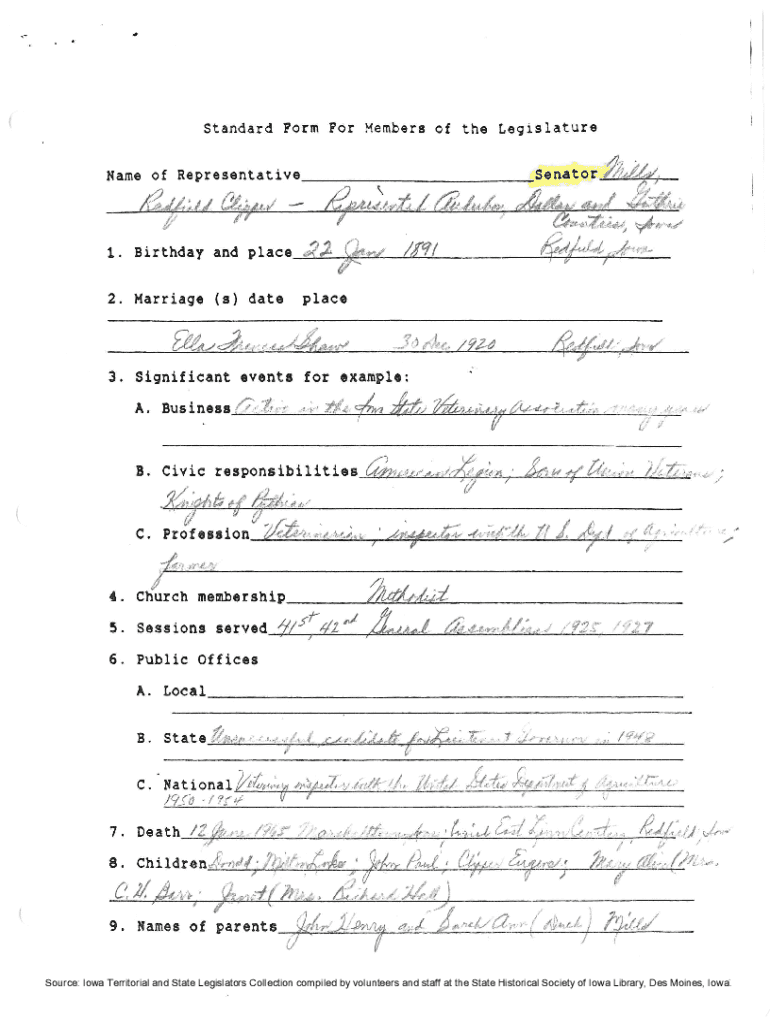 Standard Form For Members of the Legislature
Name of Representative Senator Mills,
Redfield Clipper - Represented Audubon, Dallas and Guthrie
Counties, Iowa
1. Birthday and place 22 Jan 1891 Redfield, Iowa
2. Marriage (s) date place
Ella Shaw 30 Dec 1920 Redfield, Iowa
3. Significant events for example:
A. Business Active in the Iowa State Veterinary Association many years
B. Civic responsibilities American Legion; Sons of Union Veterans;
Knights of Pythias
C. Profession Veterinarian; inspector with the U.S. Dept of Agriculture;
farmer
4. Church membership Methodist
5. Sessions served 41st, 42nd General Assemblies 1925, 1927
6. Public Offices
A. Local
B. State Unsuccessful candidate for Lieutenant Governor in 1948
C. National inspector with the United States Department of Agriculture
1950-1954
7. Death 12 1965 Iowa; buried East Cemetery, Redfield, Iowa
8. Children Donald; Milton; John Paul; Clipper Eugene; Mary (Mrs.
C. H. Barr; Janet (Mrs. Richard Hall)
9. Names of parents John Henry and Sarah Ann Mills
Source: Iowa Territorial and State Legislators Collection compiled by volunteers and staff at the State Historical Society of Iowa Library, Des Moines, Iowa.